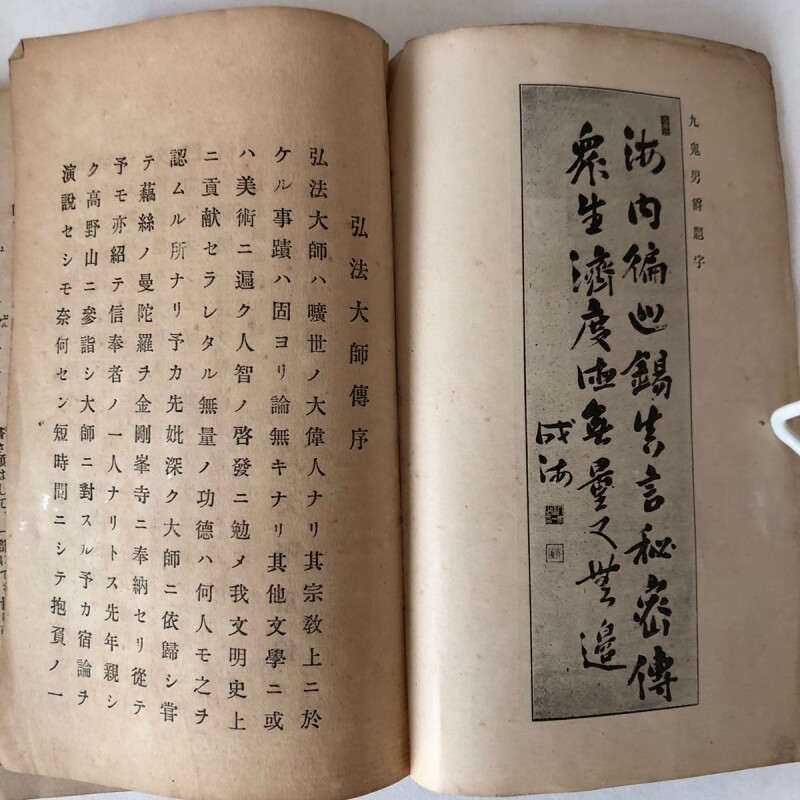 九鬼男爵題字
海内徧巡錫真言秘密傳
衆生濟度徳無量又無邊
成海
弘法大師傳序
弘法大師ハ曠世ノ大偉人ナリ其宗敎上ニ於
ケル事蹟ハ固ヨリ論無キナリ其他文學ニ或
ハ美術ニ遍ク人智ノ啓發ニ勉メ我文明史上
ニ貢献セラレタル無量ノ功德ハ何人モ之ヲ
認ムル所ナリ予カ先妣深ク大師ニ依歸シ甞
テ藕絲ノ曼陀羅ヲ金剛峯寺ニ奉納セリ從テ
予モ亦紹テ信奉者ノ一人ナリトス先年親シ
ク高野山ニ參詣シ大師ニ對スル予カ宿論ヲ
演說セシモ奈何セン短時間ニシテ抱負ノ一